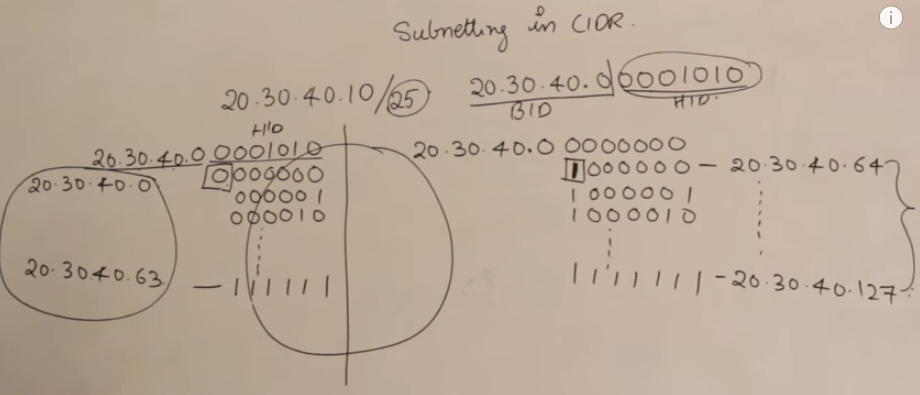 Subnetting in CIDR.
20.30.40.10/25
20.30.40.0 0001010
BID HID.
HID
20.30.40.0 0001010
0000000
20.30.40.0
000001
000010
20.30.40.63
— 111111
20.30.40.0 0000000
1000000 — 20.30.40.64
1000001
1000010
1111111 — 20.30.40.127